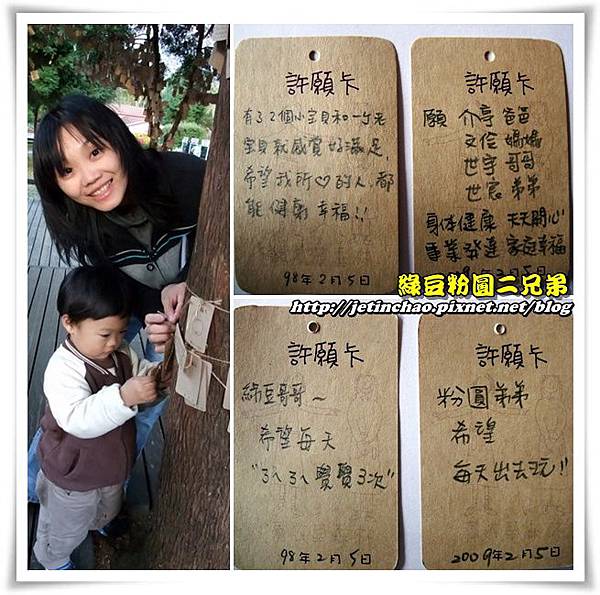 許願卡
有了2個小宝貝和一个老
宝貝就感覺好滿足,
希望我所♡的人,都
能健康幸福!!
98年2月5日
許願卡
願 介亭 爸爸
文伶 媽媽
世宇 哥哥
世宸 弟弟
身体健康 天天開心
事業發達 家庭幸福
98年2月5日
綠豆粉圓二兄弟
http://jetinchao.pixnet.net/blog
許願卡
綠豆哥哥~
希望每天
"ㄋㄟㄋㄟ 覺覺3次"
98年2月5日
許願卡
粉圓弟弟
希望
每天出去玩!!
2009年2月5日